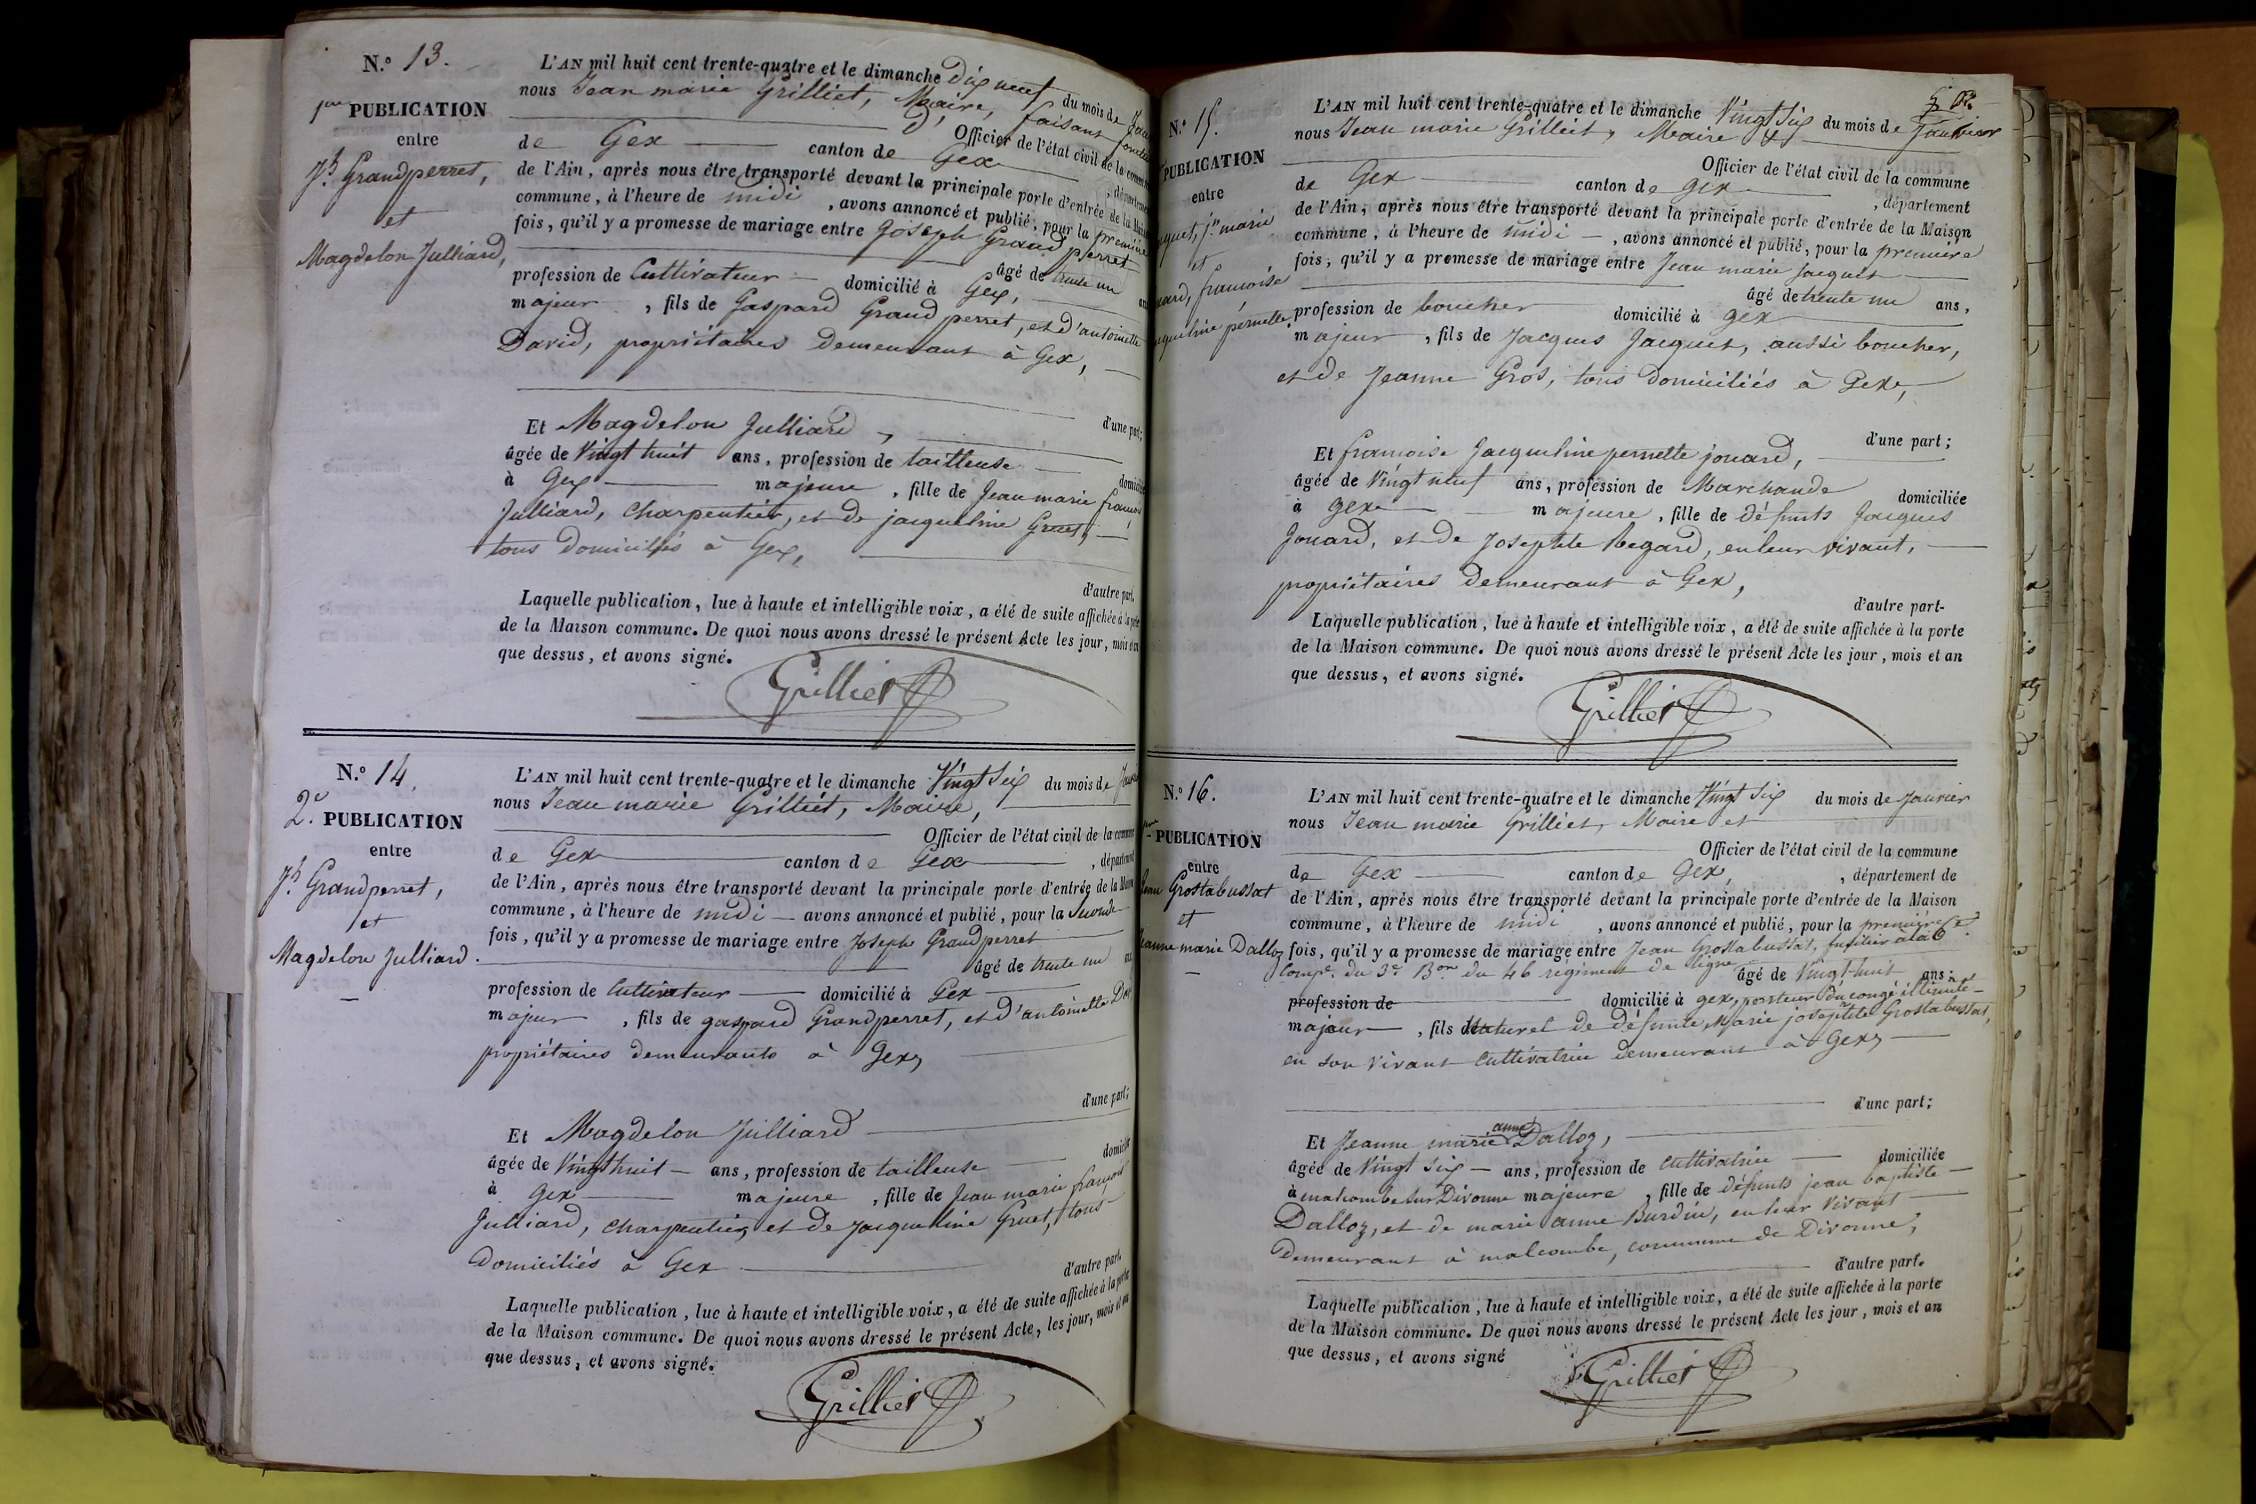 N.° 13.
1ere PUBLICATION
entre
Jh Grandperret,
et
Magdelon Julliard,
L'AN mil huit cent trente-quatre et le dimanche Dix neuf du mois de
nous Jean marie Grilliet, Maire, faisant
Officier de l'état civil de la
de Gex canton de Gex
de l'Ain, après nous être transporté devant la principale porte d'entrée de la
commune, à l'heure de midi, avons annoncé et publié, pour la première
fois, qu'il y a promesse de mariage entre Joseph Grand perret
âgé de trente un
profession de Cultivateur domicilié à Gex,
majeur, fils de Gaspard Grand perret, et d'antoinette
David, propriétaires demeurant à Gex,
d'une part;
Et Magdelon Julliard,
âgée de Vingt huit ans, profession de tailleuse
à Gex majeure, fille de Jean marie
Julliard, charpentier, et de jacqueline Gruet,
tous domiciliés à Gex,
d'autre part.
Laquelle publication, lue à haute et intelligible voix, a été de suite affichée à la
de la Maison commune. De quoi nous avons dressé le présent Acte les jour, mois
que dessus, et avons signé.
Grilliet
N.° 14.
2e. PUBLICATION
entre
Jh Grandperret,
et
Magdelon Julliard.
L'AN mil huit cent trente-quatre et le dimanche Vingt Six du mois de
nous Jean marie Grilliet, Maire,
Officier de l'état civil de la
de Gex canton de Gex
de l'Ain, après nous être transporté devant la principale porte d'entrée de la
commune, à l'heure de midi avons annoncé et publié, pour la seconde
fois, qu'il y a promesse de mariage entre Joseph Grandperret
âgé de trente un
profession de Cultivateur domicilié à Gex
majeur, fils de gaspard Grandperret, et d'antoinette
propriétaires demeurants à Gex,
d'une part;
Et Magdelon Julliard
âgée de Vingt huit ans, profession de tailleuse
à Gex majeure, fille de Jean marie françois
Julliard, charpentier, et de jacqueline Gruet, tous
domiciliés à Gex
d'autre part.
Laquelle publication, lue à haute et intelligible voix, a été de suite affichée à la
de la Maison commune. De quoi nous avons dressé le présent Acte, les jour, mois et an
que dessus, et avons signé.
Grilliet
N.° 15.
PUBLICATION
entre
marie
et
françoise
pernette.
L'AN mil huit cent trente-quatre et le dimanche Vingt Six du mois de Janvier
nous Jean marie Grilliet, Maire
Officier de l'état civil de la commune
de Gex canton de gex, département
de l'Ain, après nous être transporté devant la principale porte d'entrée de la Maison
commune, à l'heure de midi, avons annoncé et publié, pour la première
fois, qu'il y a promesse de mariage entre Jean marie Jacquet
âgé de trente un ans,
profession de boucher domicilié à gex
majeur, fils de Jacques Jacquet, aussi boucher,
et de Jeanne Gros, tous domiciliés à Gex,
d'une part;
Et françoise Jacqueline pernette jouard,
âgée de Vingt neuf ans, profession de Marchande domiciliée
à gex majeure, fille de défunts Jacques
Jouard, et de Josephte Regard, en leur vivant,
propriétaires demeurant à Gex,
d'autre part-
Laquelle publication, lue à haute et intelligible voix, a été de suite affichée à la porte
de la Maison commune. De quoi nous avons dressé le présent Acte les jour, mois et an
que dessus, et avons signé.
Grilliet
N.° 16.
PUBLICATION
entre
Jean Grostabussat
et
Jeanne marie Dalloz
L'AN mil huit cent trente-quatre et le dimanche Vingt Six du mois de Janvier
nous Jean marie Grilliet, Maire et
Officier de l'état civil de la commune
de Gex canton de Gex, département de
de l'Ain, après nous être transporté devant la principale porte d'entrée de la Maison
commune, à l'heure de midi, avons annoncé et publié, pour la première
fois, qu'il y a promesse de mariage entre Jean Grostabussat, fusilier à la 6e.
Compe. du 3e Bon du 46 régiment de ligne âgé de Vingt-huit ans,
profession de domicilié à gex, porteur d'un congé illimité
majeur, fils naturel de défunte Marie josephte Grostabussat,
en son vivant cultivatrice demeurant à Gex,
d'une part;
Et Jeanne marie anne Dalloz,
âgée de Vingt six ans, profession de cultivatrice domiciliée
à malcombe sur Divonne majeure, fille de défunts jean baptiste
Dalloz, et de marie anne Burdin, en leur vivant
demeurant à malcombe, commune de Divonne,
d'autre part.
Laquelle publication, lue à haute et intelligible voix, a été de suite affichée à la porte
de la Maison commune. De quoi nous avons dressé le présent Acte les jour, mois et an
que dessus, et avons signé
Grilliet